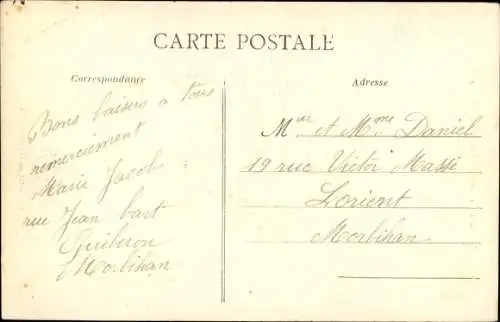 CARTE POSTALE
Correspondance
Bons baisers à tous
remerciement
Marie Jacob
rue Jean bart
Quiberon
Morbihan
Adresse
Mur et Mme Daniel
19 rue Victor Massé
Lorient
Morbihan